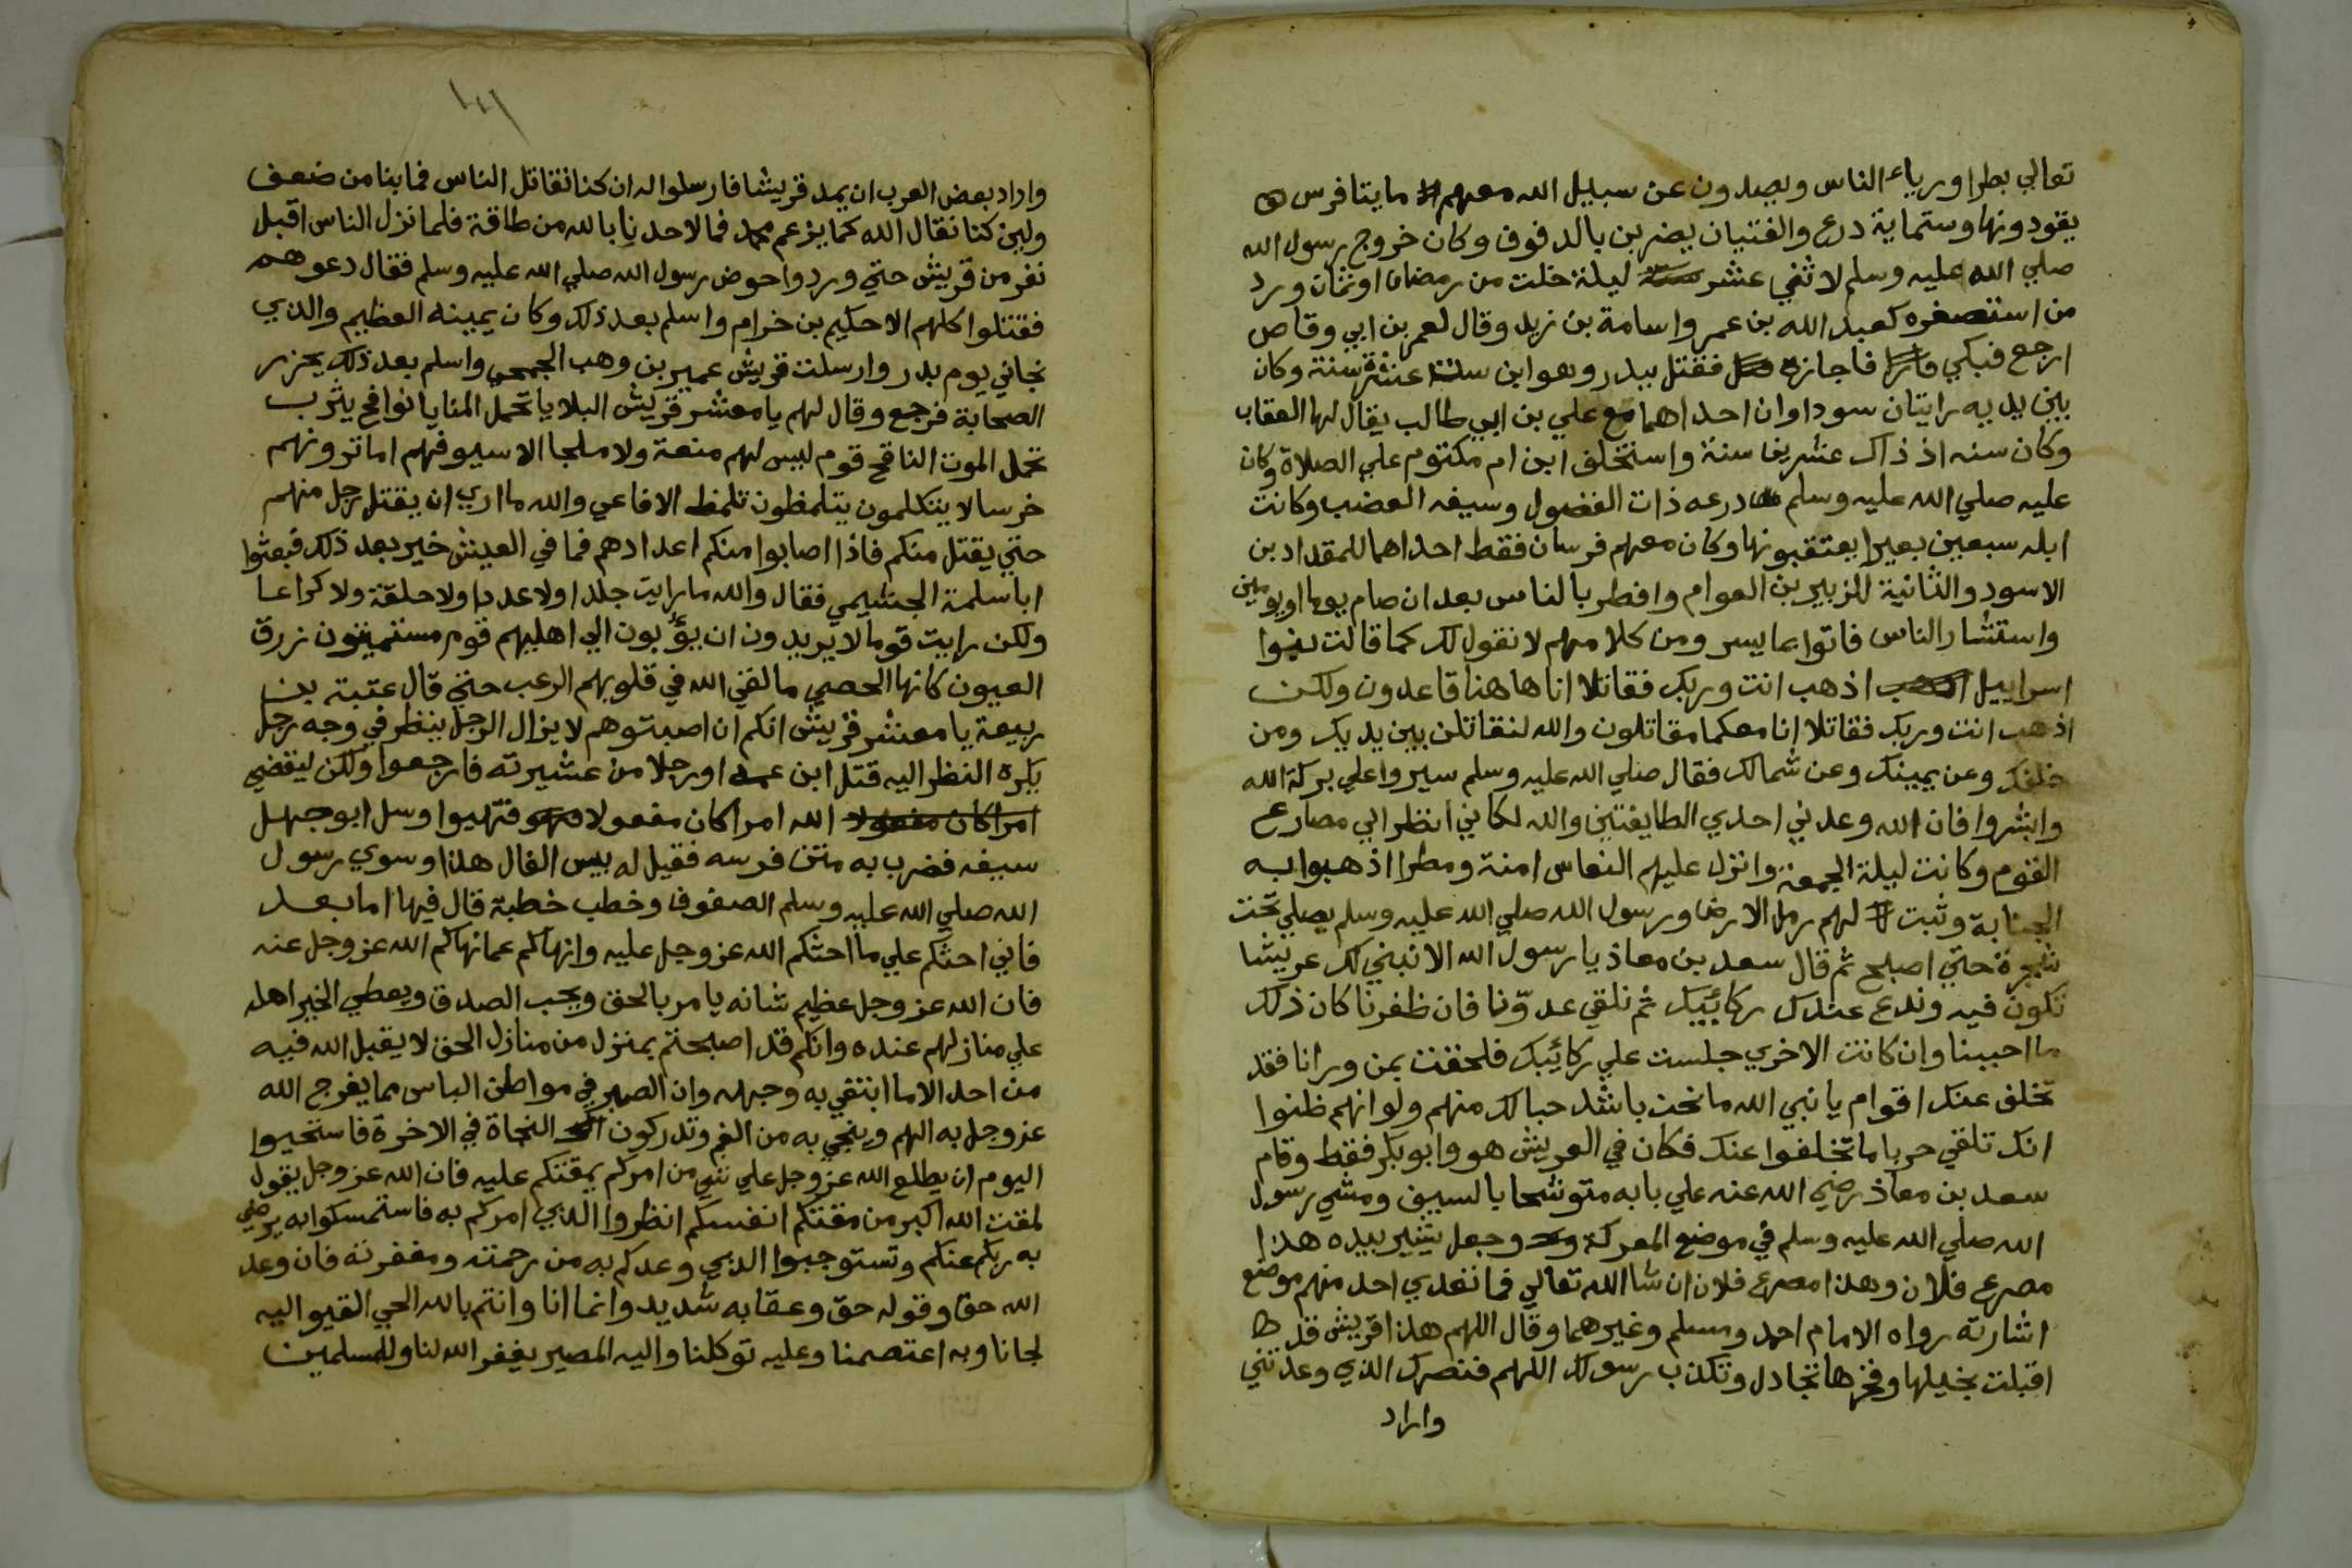 تعالي بطرا ورياء الناس ويصدون عن سبيل الله معهم مايتا فرس
يقودونها وستماية درع والفتيان يضربن بالدفوف وكان خروج رسول الله
صلي الله عليه وسلم لاثني عشر ليلة خلت من رمضان اوثمان ورد
من استصغره كعبد الله بن عمر واسامة بن زيد وقال لعمر بن ابي وقاص
ارجع فبكي فاجازه فقتل ببدر وهو ابن ستة عشرة سنة وكان
بين يديه رايتان سوداوان احداهما مع علي بن ابي طالب يقال لها العقاب
وكان سنه اذ ذاك عشرين سنة واستخلف ابن ام مكتوم علي الصلاة وكان
عليه صلي الله عليه وسلم درعه ذات الفضول وسيفه العضب وكانت
ابله سبعين بعيرا يعتقبونها وكان معهم فرسان فقط احداهما للمقداد بن
الاسود والثانية للزبير بن العوام وافطر بالناس بعد ان صام يوما اويومين
واستشار الناس فاتوا بما يسر ومن كلامهم لا نقول لك كما قالت بنوا
اسراييل اذهب انت وربك فقاتلا انا هاهنا قاعدون ولكن
اذهب انت وربك فقاتلا انا معكما مقاتلون والله لنقاتلن بين يديك ومن
خلفك وعن يمينك وعن شمالك فقال صلي الله عليه وسلم سيروا علي بركة الله
وابشروا فان الله وعدني احدي الطايفتين والله لكاني انظر الي مصارع
القوم وكانت ليلة الجمعة وانزل عليهم النعاس امنة ومطرا اذهبوا به
الجنابة وثبت لهم رمل الارض ورسول الله صلي الله عليه وسلم يصلي تحت
شجرة حتي اصبح ثم قال سعد بن معاذ يا رسول الله الا نبني لك عريشا
تكون فيه وندع عندك ركائبك ثم نلقي عدوّنا فان ظفرنا كان ذلك
ما احببنا وان كانت الاخري جلست علي ركائبك فلحقت بمن ورانا فقد
تخلف عنك اقوام يا نبي الله ما نحن باشد حبا لك منهم ولو انهم ظنوا
انك تلقي حربا ما تخلفوا عنك فكان في العريش هو وابو بكر فقط وقام
سعد بن معاذ رضي الله عنه علي بابه متوشحا بالسيف ومشي رسول
الله صلي الله عليه وسلم في موضع المعركة وجعل يشير بيده هذا
مصرع فلان وهذا مصرع فلان ان شا الله تعالي فما تعدي احد منهم موضع
اشارته رواه الامام احمد ومسلم وغيرهما وقال اللهم هذا قريش قد
اقبلت بخيلها وفخرها تجادل وتكذب رسولك اللهم فنصرك الذي وعدتني
واراد
واراد بعض العرب ان يمد قريشا فارسلوا له ان كنا نقاتل الناس فما بنا من ضعف
ولين كنا نقاتل الله كما يزعم محمد فما لاحد نا بالله من طاقة فلما نزل الناس اقبل
نفر من قريش حتي وردوا حوض رسول الله صلي الله عليه وسلم فقال دعوهم
فقتلوا كلهم الا حكيم بن خرام واسلم بعد ذلك وكان يمينه العظيم والذي
نجاني يوم بدر وارسلت قريش عمير بن وهب الجمحي واسلم بعد ذلك يحزر
الصحابة فرجع وقال لهم يا معشر قريش البلايا تحمل المنايا نواضح يثرب
تحمل الموت الناقع قوم ليس لهم منعة ولا ملجا الا سيوفهم اما ترونهم
خرسا لا يتكلمون يتلمظون تلمظ الافاعي والله ما اري ان يقتل رجل منهم
حتي يقتل منكم فاذا اصابوا منكم اعدادهم فما في العيش خير بعد ذلك فبعثوا
ابا سلمة الجشيمي فقال والله ما رايت جلدا ولا عددا ولا حلقة ولا كراعا
ولكن رايت قوما لا يريدون ان يؤبون الي اهليهم قوم مستميتون زرق
العيون كانها الحصي ما لقي الله في قلوبهم الرعب حتي قال عتبة بن
ربيعة يا معشر قريش انكم ان اصبتوهم لا يزال الرجل ينظر في وجه رجل
يكره النظر اليه قتل ابن عمه او رجلا من عشيرته فارجعوا ولكن ليقضي
امرا كان مفعولا الله امرا كان مفعولا فتهيوا وسل ابو جهل
سيفه فضرب به متن فرسه فقيل له بيس الفال هذا وسوي رسول
الله صلي الله عليه وسلم الصفوف وخطب خطبة قال فيها اما بعد
فاني احثكم علي ما احثكم الله عز وجل عليه وانهاكم عما نهاكم الله عز وجل عنه
فان الله عز وجل عظيم شانه يامر بالحق ويحب الصدق ويعطي الخير اهله
علي منازلهم عنده وانكم قد اصبحتم بمنزل من منازل الحق لا يقبل الله فيه
من احد الا ما ابتغي به وجهه وان الصبر في مواطن الباس مما يفرج الله
عز وجل به الهم وينجي به من الغم وتدركون النجاة في الاخرة فاستحيوا
اليوم ان يطلع الله عز وجل علي شي من امركم يمقتكم عليه فان الله عز وجل يقول
لمقت الله اكبر من مقتكم انفسكم انظروا الذي امركم به فاستمسكوا به يرضي
به ربكم عنكم وتستوجبوا الذي وعدكم به من رحمته ومغفرته فان وعد
الله حق وقوله حق وعقابه شديد وانما انا وانتم بالله الحي القيوم اليه
لجانا وبه اعتصمنا وعليه توكلنا واليه المصير يغفر الله لنا وللمسلمين